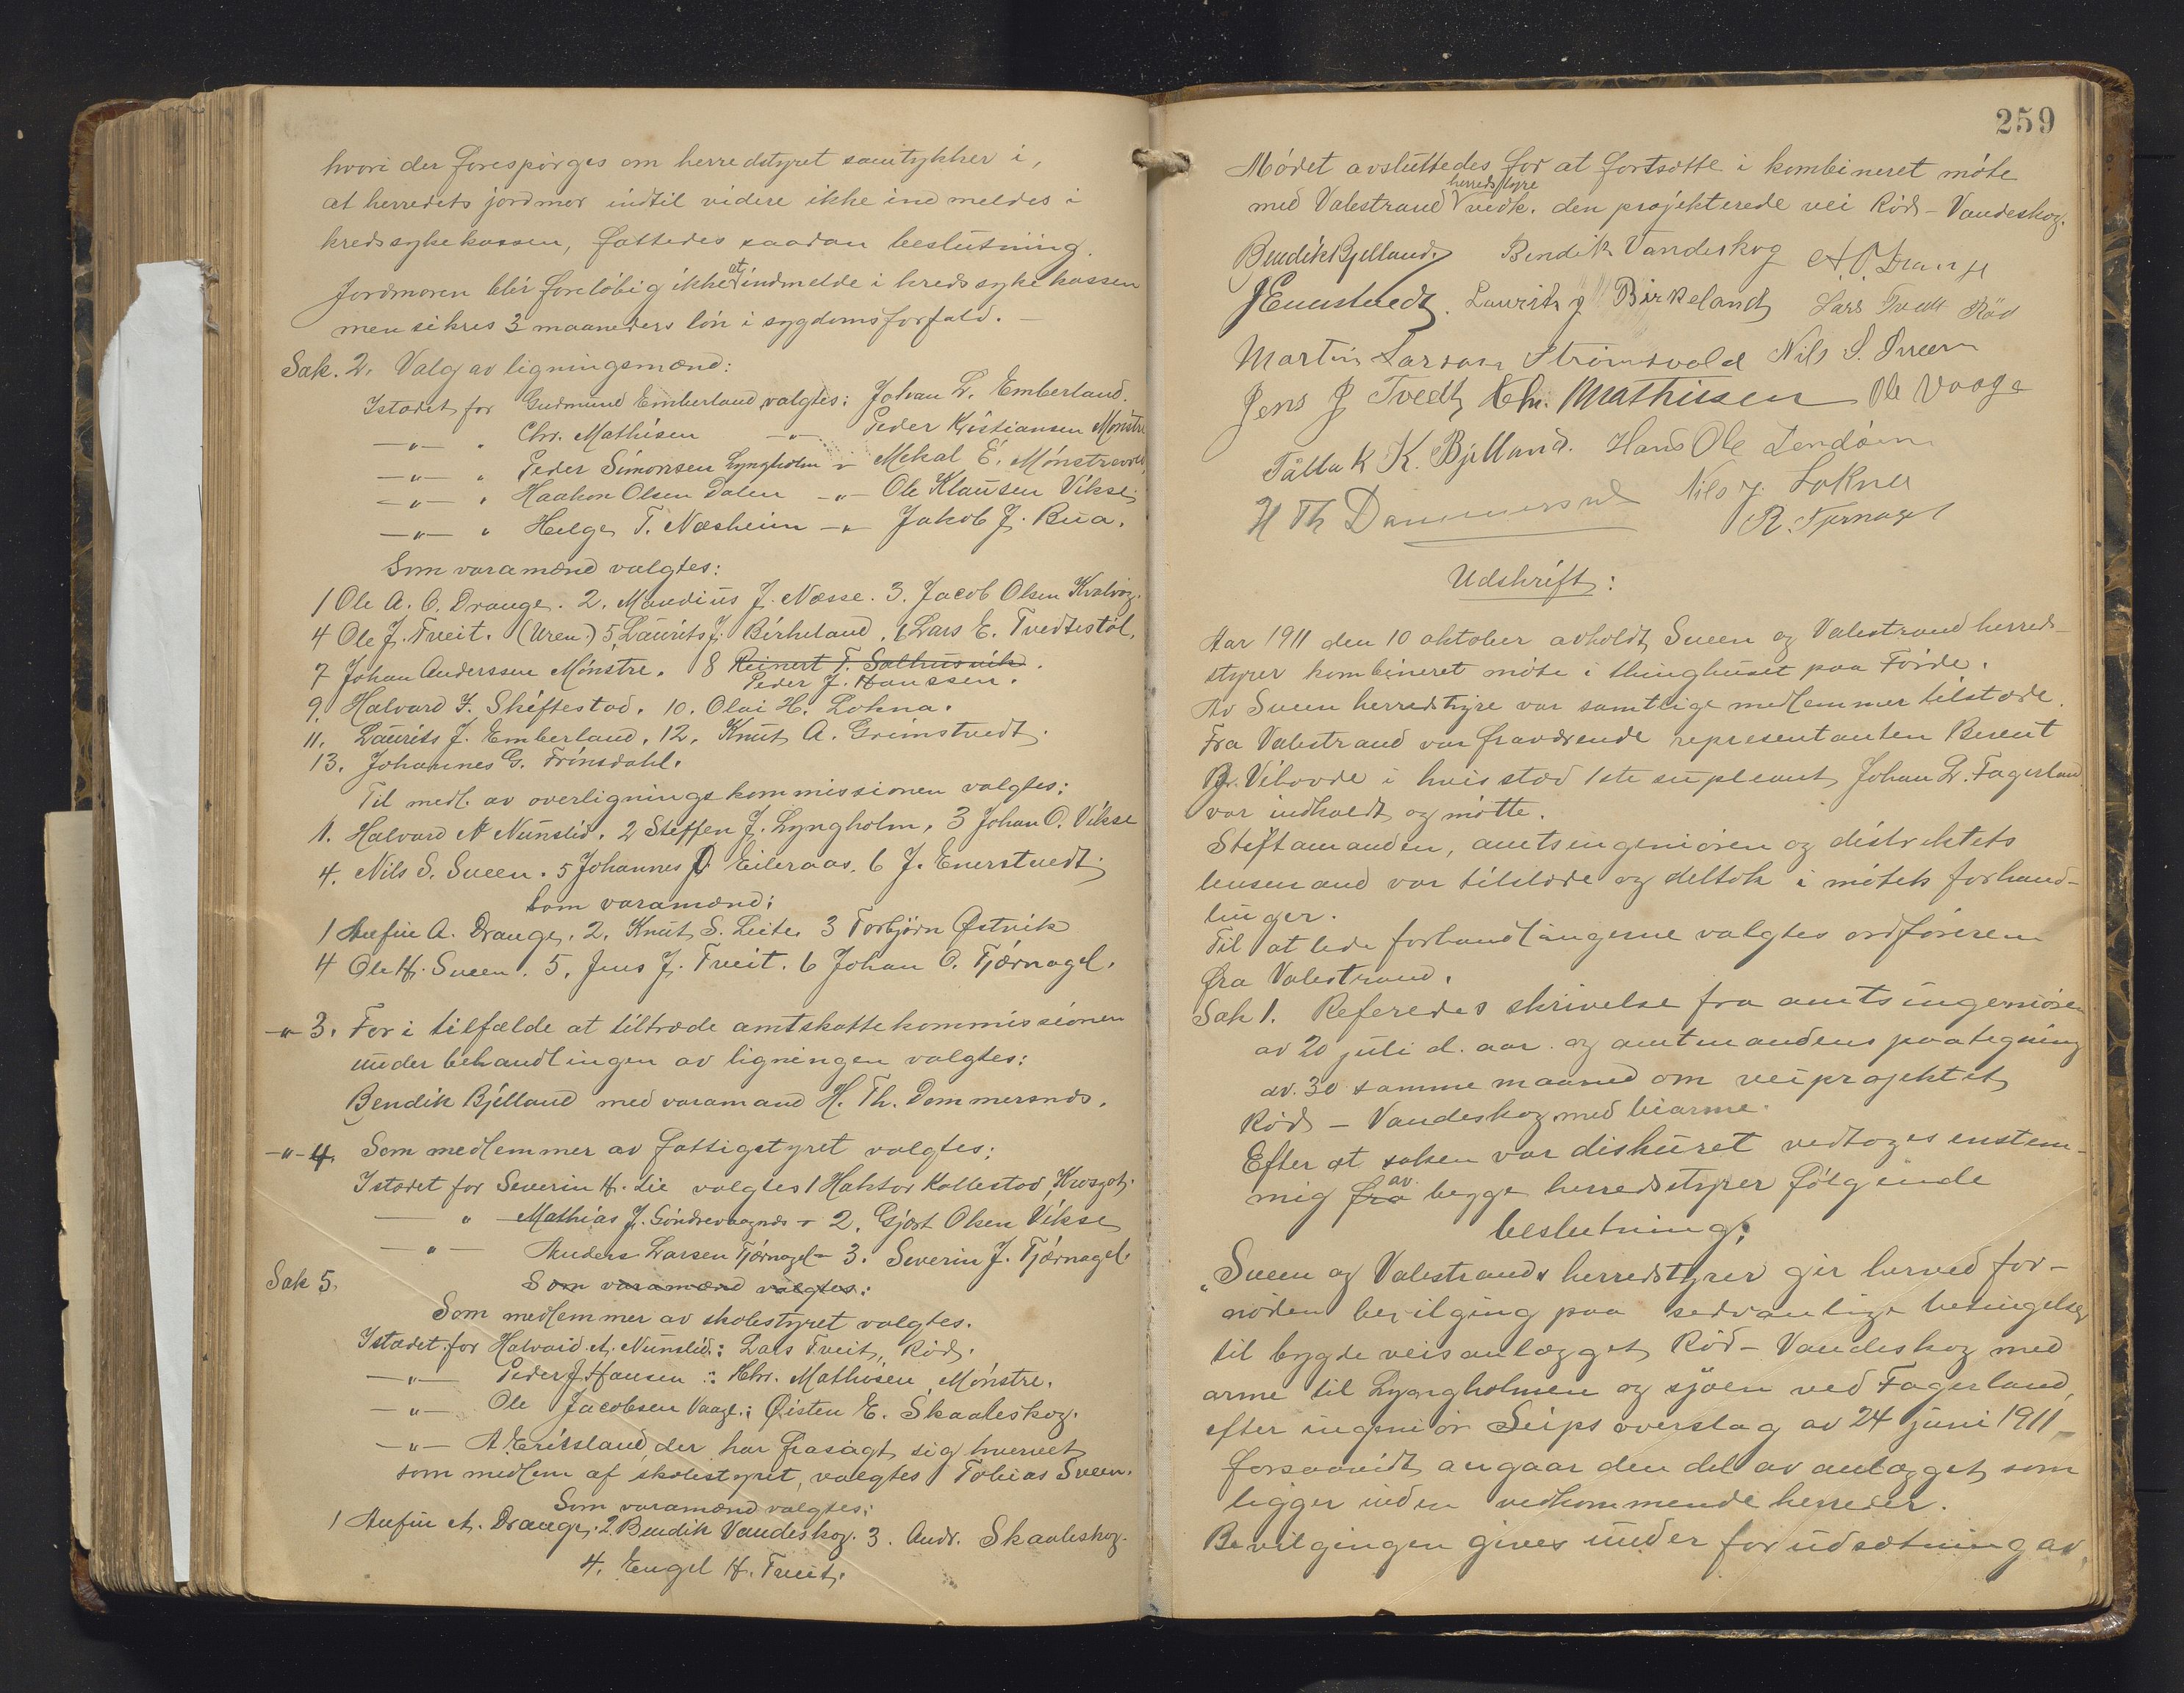 hvori der forespørges om herredstyret samtykker i,
at herredets jordmor indtil videre ikke indmeldes i
kredssykekassen, fattedes saadan beslutning.
Jordmoren blir foreløbig ikke at indmelde i kredssykekassen
men sikres 3 maaneders løn i sygdomsforfald. —
Sak. 2. Valg av ligningsmænd:
Istædet for Gudmund Emberland valgtes: Johan L. Emberland.
—„— „ Chr. Mathisen —„— Peder Kristiansen Mønstre
—„— „ Peder Simonsen Lyngholm —„— Mikal E. Mønstrevold,
—„— „ Haakon Olsen Dalen —„— Ole Klausen Vikse,
—„— „ Helge T. Næsheim —„— Jakob J. Bua.
Som varamænd valgtes:
1 Ole A. O. Drange. 2. Mandius J. Næsse. 3. Jacob Olsen Kvalvaag.
4 Ole J. Tveit. (Uren) 5 Laurits J. Birkeland. 6 Lars E. Tvedtestøl,
7 Johan Anderssen Mønstre. 8 Reinert T. Salthusvik.
Peder J. Hanssen.
9. Halvard J. Skiftestad. 10. Olai H. Lokna.
11. Laurits J. Emberland. 12. Knut A. Grimstvedt.
13. Johannes G. Frønsdahl.
Til medl. av overligningskommissionen valgtes:
1. Halvard A Nunslid. 2 Steffen J. Lyngholm. 3 Johan O. Vikse
4. Nils S. Sveen. 5 Johannes J. Eileraas. 6 J. Enerstvedt.
Som varamænd:
1 Anfin A. Drange. 2. Knut S. Leite. 3 Torbjørn Østvik
4 Ole H. Sveen. 5. Jens J. Tveit. 6 Johan O. Tjørnagel.
—„— 3. For i tilfælde at tiltræde amtskattekommissionen
under behandlingen av ligningen valgtes:
Bendik Bjelland med varamand H. Th. Dommersnds.
—„— 4. Som medlemmer av fattigstyret valgtes:
Istædet for Severin H. Lie valgtes 1 Haktor Kallestad, Krosgot.
— „ — Mathias J. Søndrevaagnds — 2. Gjert Olsen Vikse
— „ — Anders Larsen Tjørnagel — 3. Severin J. Tjørnagel.
Sak 5. Som varamænd valgtes:
Som medlemmer av skolestyret valgtes.
Istædet for Halvard A. Nunslid: Lars Tveit, Rød.
—„— Peder J. Hansen : Chr. Mathisen, Mønstre.
—„— Ole Jacobsen Vaage.: Øisten E. Skaaleskog.
—„— A Eritsland, der har frasagt sig hvervet
som medlem af skolestyret, valgtes Tobias Sveen.
Som varamænd valgtes:
1 Anfin A. Drange. 2. Bendik Vandeskog. 3. Andr. Skaaleskog.
4. Engel H. Tveit.
259
Mødet avsluttedes for at fortsætte i kombineret møte
med Valestrand herredstyre vedk. den projekterede vei Rød – Vandeskog.
Bendik Bjelland. Bendik Vandeskog A O Drange
J Enerstvedt. Laurits J Birkeland Lars Tvedt Rød
Martin Larsen Strømsvold Nils S. Sveen
Jens J Tvedt Chr. Mathisen Ole Vaage
Tollak K. Bjelland. Hans Ole
H Th Dommersnd Nils J. Lokna
R. Tjernagel
Udskrift:
Aar 1911 den 10 oktober avholdt Sveen og Valestrand herreds-
styrer kombineret møte i thinghuset paa Førde.
Av Sveen herredstyre var samtlige medlemmer tilstæde.
Fra Valestrand var fraværende representanten Berent
Br. Vihovde i hvis sted 1ste supleant Johan L. Fagerland
var indkaldt og møtte.
Stiftamanden, amtsingeniøren og distriktets
lensmand var tilstæde og deltok i møtets forhand-
linger.
Til at lede forhandlingerne valgtes ordføreren
fra Valestrand.
Sak 1. Referedes skrivelse fra amtsingeniøren
av 20 juli d. aar. og amtmandens paategning
av. 30 samme maaned om veiprojektet
Rød – Vandeskog med biarme.
Efter at saken var diskuret vedtoges enstem-
mig fra av begge herredsstyrer følgende
beslutning:
„Sveen og Valestrands herredstyrer gir herved for-
nøden bevilging paa sedvanlige betingelser
til bygdeveisanlægget Rød – Vandeskog med
arme til Lyngholmen og sjøen ved Fagerland,
efter ingeniør Seips overslag av 24 juni 1911,
forsaavidt angaar den del av anlægget som
ligger inden vedkommende herreder.
Bevilgingen gives under forudsætning av,